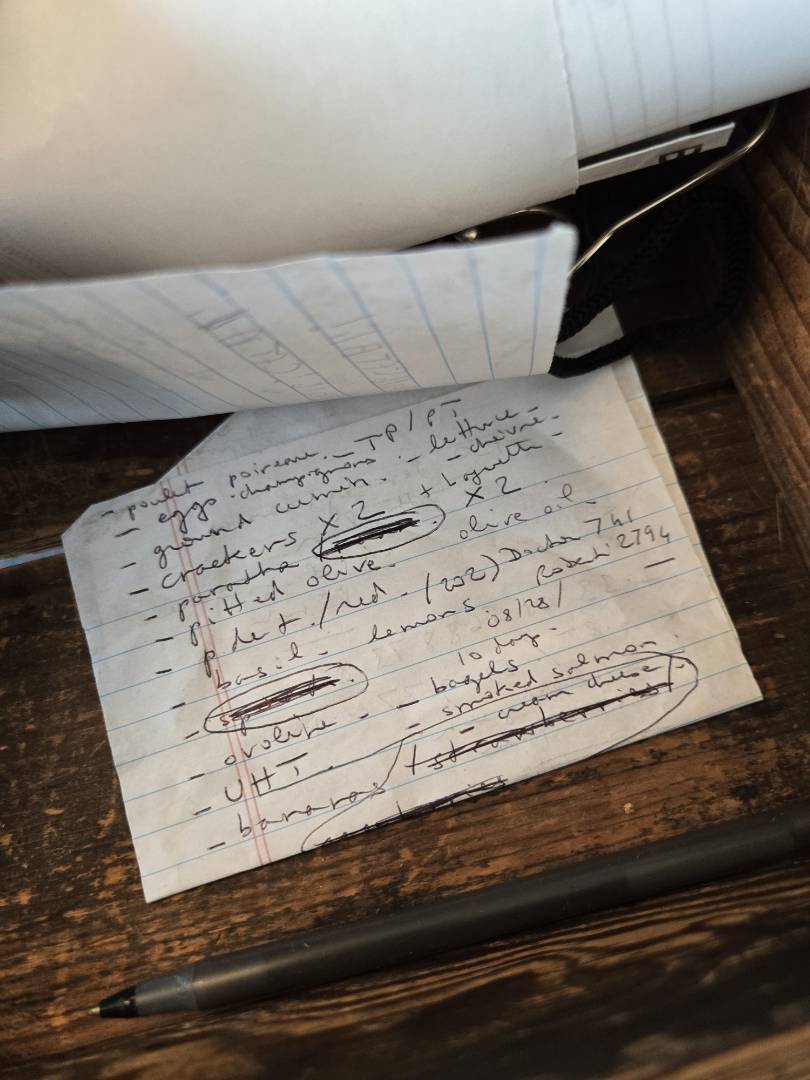 - poulet poireau. - TP / PT
- eggs. champignons. - lettuce -
- ground cumin. - chèvre.
- crackers X 2 + baguette -
- paratha X 2
- pitted olive. olive oil.
- p det. / red. (202) Doctor 741
- basil. lemons. Robert 2794
08/28/
- ovolite - 10 day.
- UHT. - bagels
- bananas - smoked salmon.
- cream cheese
strawberries